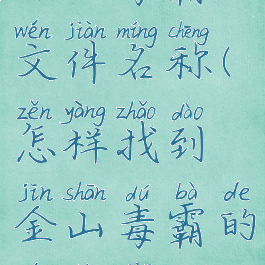 wén jiàn míng chēng
文件名称(
zěn yàng zhǎo dào
怎样找到
jīn shān dú bà de
金山毒霸的